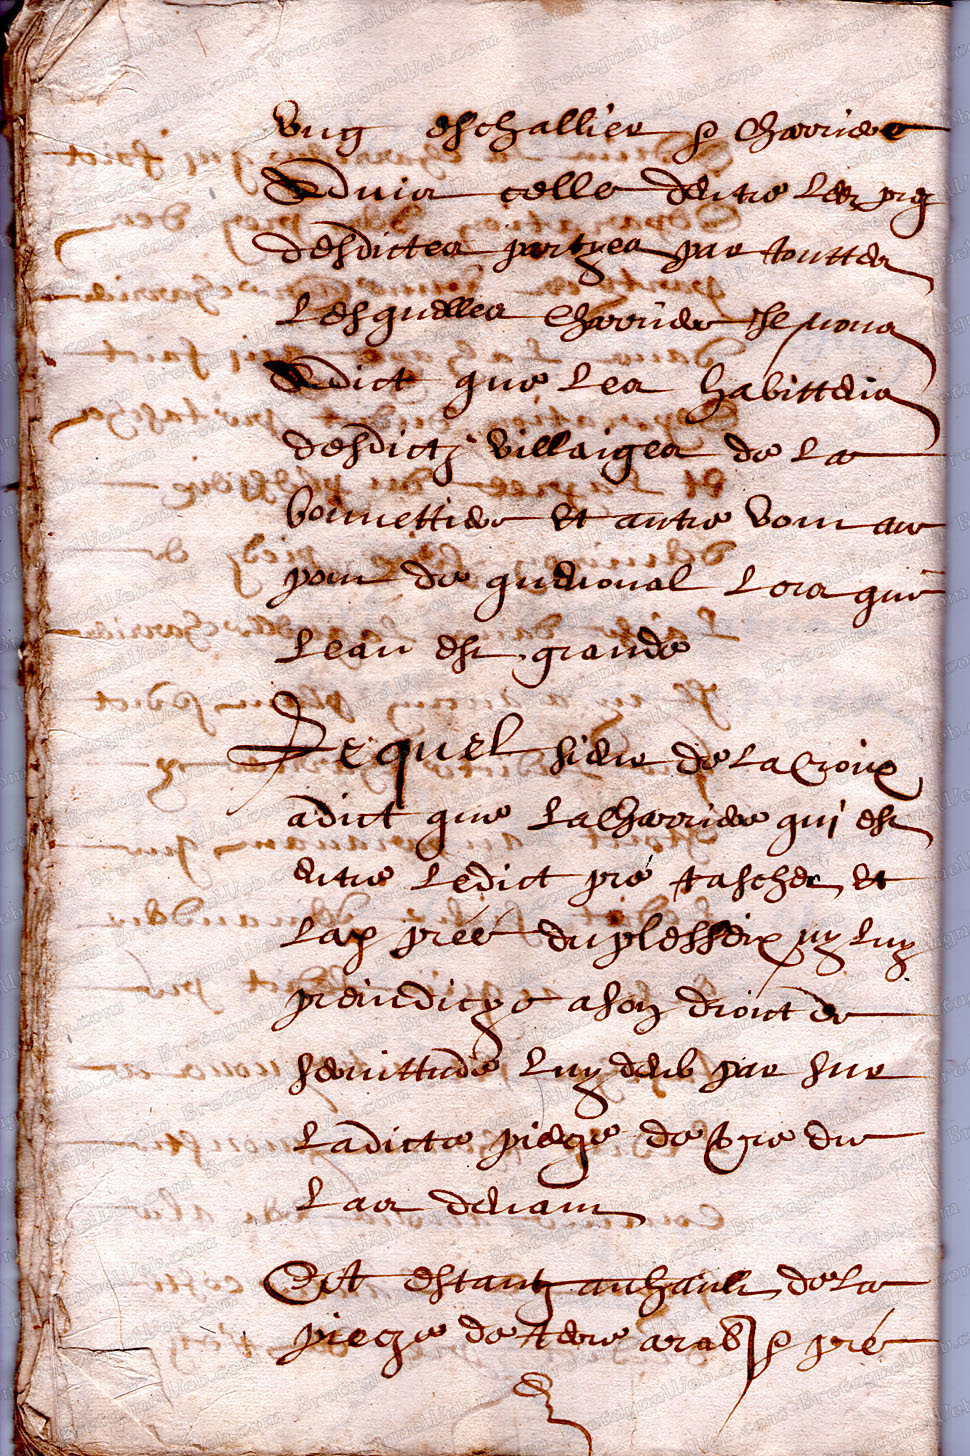 vng eschallier & charriere
Advis celle dentre les prez
desdictes partyes par touttes
Lesquelles charrieres
Adict que Les habittans
desdictz villaiges de La
bonnettiere Et autre vont au
pont de quenoual Lors que
Leau est grande
Lequel sieur de La Croix
adict que La charriere qui est
entre Ledict pré tascher Et
pree du plesseix ny Luy
preindicye a son droict de
seruittude Luy deub par sur
Ladicte piecze de tere du
Las deuant
Et estantz au hault de La
piecze de tere arab & pré